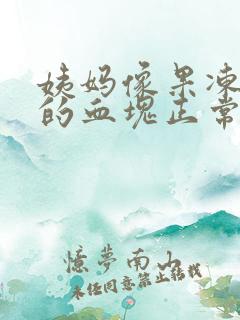 姨妈像果冻
的血块正常
憶夢南山
未经同意禁止转载